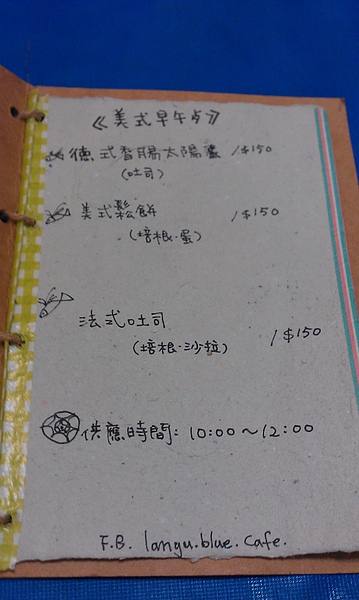 《美式早午点》
德式香腸太陽蛋 /$150
(吐司)
美式鬆餅 /$150
(培根·蛋)
法式吐司 /$150
(培根·沙拉)
供應時間: 10:00~12:00
F.B. langu.blue.cafe.